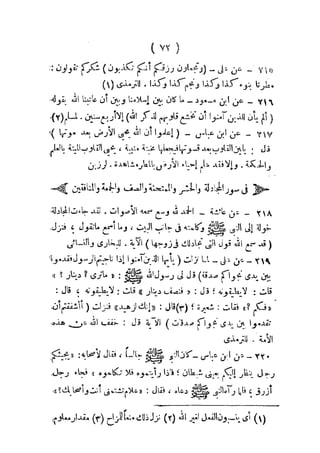 ( ٧٢ )
٧١٥ - عن علي - (وتجعلون رزقكم أنكم تكذبون) شكركم تقولون :
مطرنا بنوء كذا وكذا وبنجم كذا وكذا . للترمذي (١)
٢١٦ - عن ابن مسعود - ما كان بين إسلامنا وبين أن عاتبنا الله بقوله
( ألم يأن للذين آمنوا أن تخشع قلوبهم لذكر الله) إلا أربع سنين . لمسلم (٢)
٢١٧ - عن ابن عباس - ( إعلموا أن الله يحيي الأرض بعد موتها )
قال : يلين القلوب بعد قسوتها فيجعلها مخبتة منيبة ، يحيي القلوب الميتة بالعلم
والحكمة . وإلا فقد علم إحياء الأرض بالمطر مشاهدة . لرزين
في سور المجادلة والحشر والممتحنة والصف والجمعة والمنافقين
٢١٨ - عن عائشة - الحمد لله وسع سمعه الأصوات . لقد جاءت المجادلة
خولة إلى النبي ﷺ وكلمته في جانب البيت ، وما أسمع ما تقول ، فنزل
( قد سمع الله قول التي تجادلك في زوجها ) الآية . للبخاري والنسائي
٢١٩ - عن علي - لما نزلت ( يأيها الذين آمنوا إذا ناجيتم الرسول فقدموا
بين يدي نجواكم صدقة) قال لي رسول الله ﷺ : « ما ترى ؟ دينار ؟ »
قلت : لا يطيقونه ؛ قال : « فنصف دينار » قلت : لا يطيقونه ؛ قال :
« فكم ؟ » فقلت : شعيرة ؛ (٣) قال : « إنك لزهيد » فنزلت ( أأشفقتم أن
تقدموا بين يدي نجواكم صدقات ) الآية قال : خفف الله عن هذه
الأمة . للترمذي
٢٢٠ - عن ابن عباس - كان النبي ﷺ جالساً ، فقال لأصحابه : « يجيئكم
رجل ينظر إليكم بعيني شيطان ؛ فإذا رأيتموه فلا تكلموه » فجاء رجل
أزرق ، فلما رآه النبي ﷺ دعاه ، فقال : « علام تشتمني أنت وأصحابك ؟ »
(١) أي ينسبون الفعل لغير الله (٢) نزل ذلك منعاً للمزاح (٣) مقدار معلوم